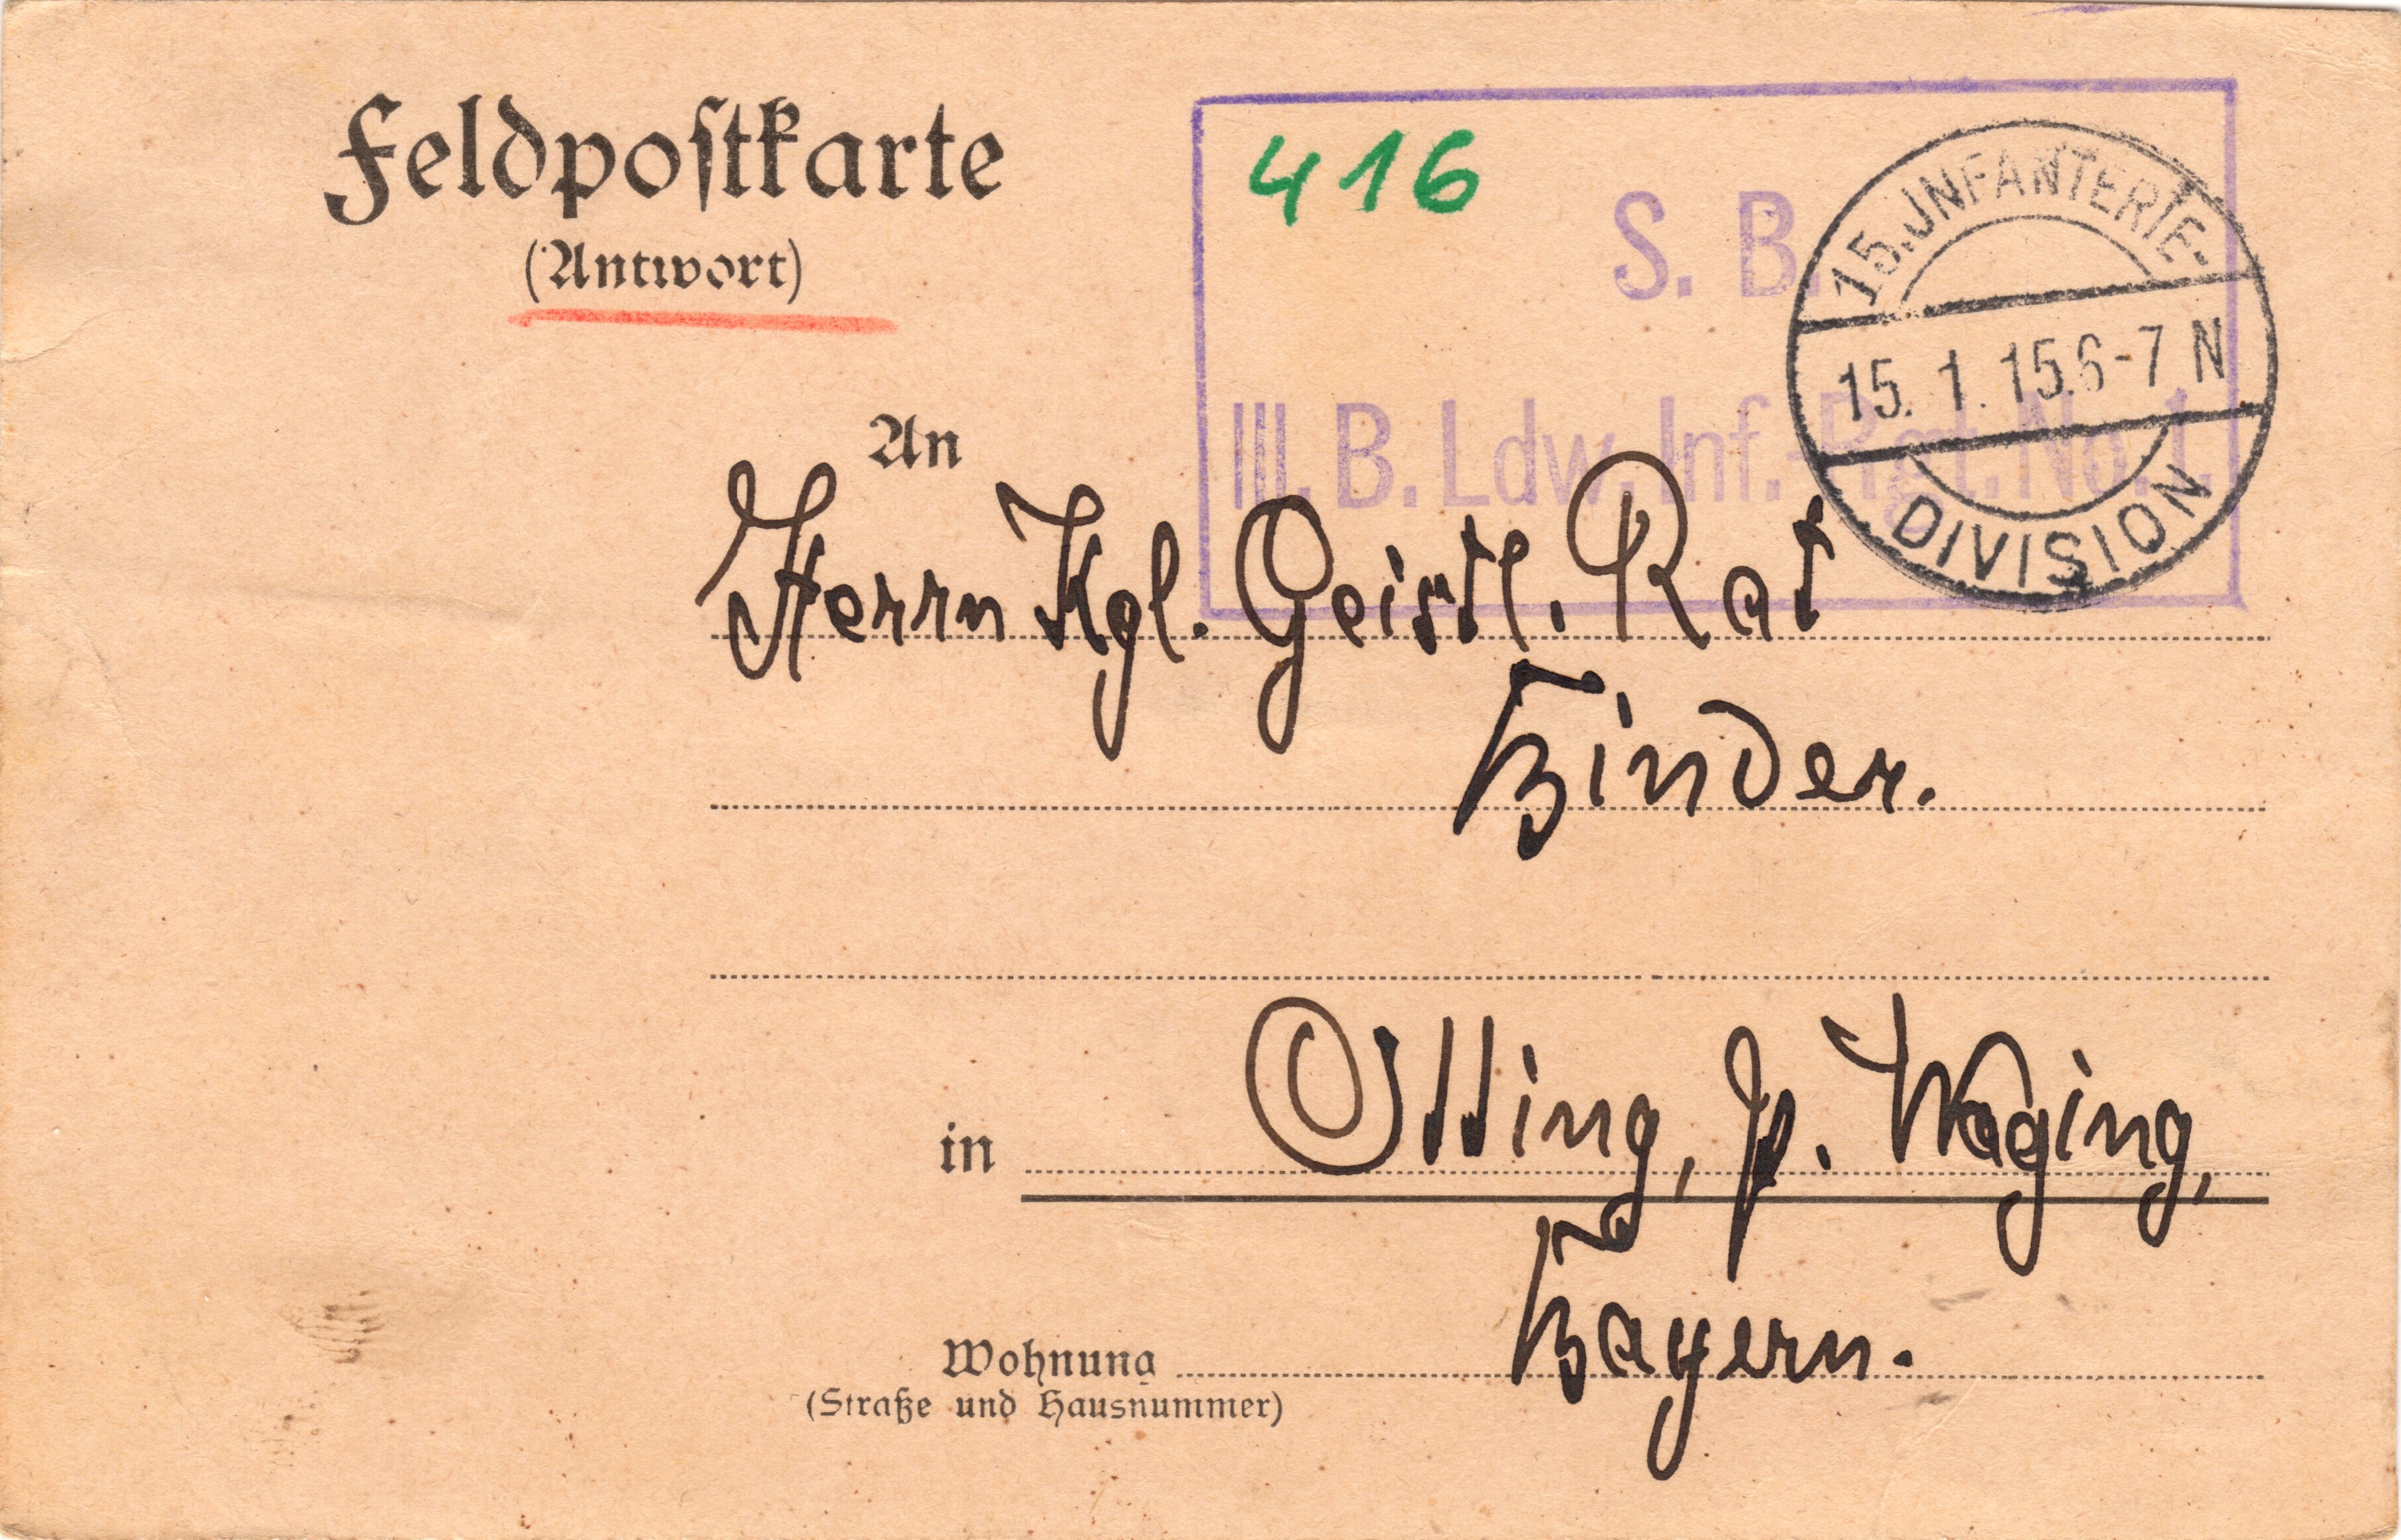 Feldpostkarte
(Antwort)
416
S. B.
III. B. Ldw. Inf.-Rgt. No. 1.
15. JNFANTERIE.
15. 1. 15. 6-7 N
DIVISION
An
Herrn Kgl. Geistl. Rat
Binder.
in Otting, p. Waging,
Bayern.
Wohnung
(Straße und Hausnummer)